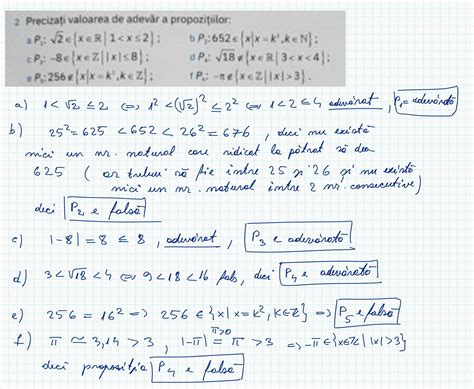 2 Precizați valoarea de adevăr a propozițiilor:
a P₁: √2∈{x∈ℝ | 1<x≤2};
b P₂: 652∈{x|x=k²,k∈ℕ};
c P₃: -8∈{x∈ℤ | |x|≤8};
d P₄: √18∉{x∈ℝ | 3<x<4};
e P₅: 256∉{x|x=k²,k∈ℤ};
f P₆: -π∉{x∈ℤ | |x|>3}.
a) 1<√2≤2 ⇔ 1²<(√2)²≤2² ⇔ 1<2≤4 adevărat, P₁= adevărată
b) 25²=625 <652 <26²=676, deci nu există
nici un nr. natural care ridicat la pătrat să dea
625 (ar trebui să fie între 25 și 26 și nu există
nici un nr. natural între 2 nr. consecutive)
deci P₂ e falsă
c) |-8|=8 ≤8, adevărat, P₃ e adevărată
d) 3<√18<4 ⇔ 9<18<16 fals, deci P₄ e adevărată
e) 256=16² ⇒ 256 ∈{x|x=k², k∈ℤ} ⇒ P₅ e falsă
f) π ≃ 3,14 >3, |-π| = π >3 ⇒ -π∈{x∈ℤ| |x|>3}
π>0
deci propoziția P₄ e falsă